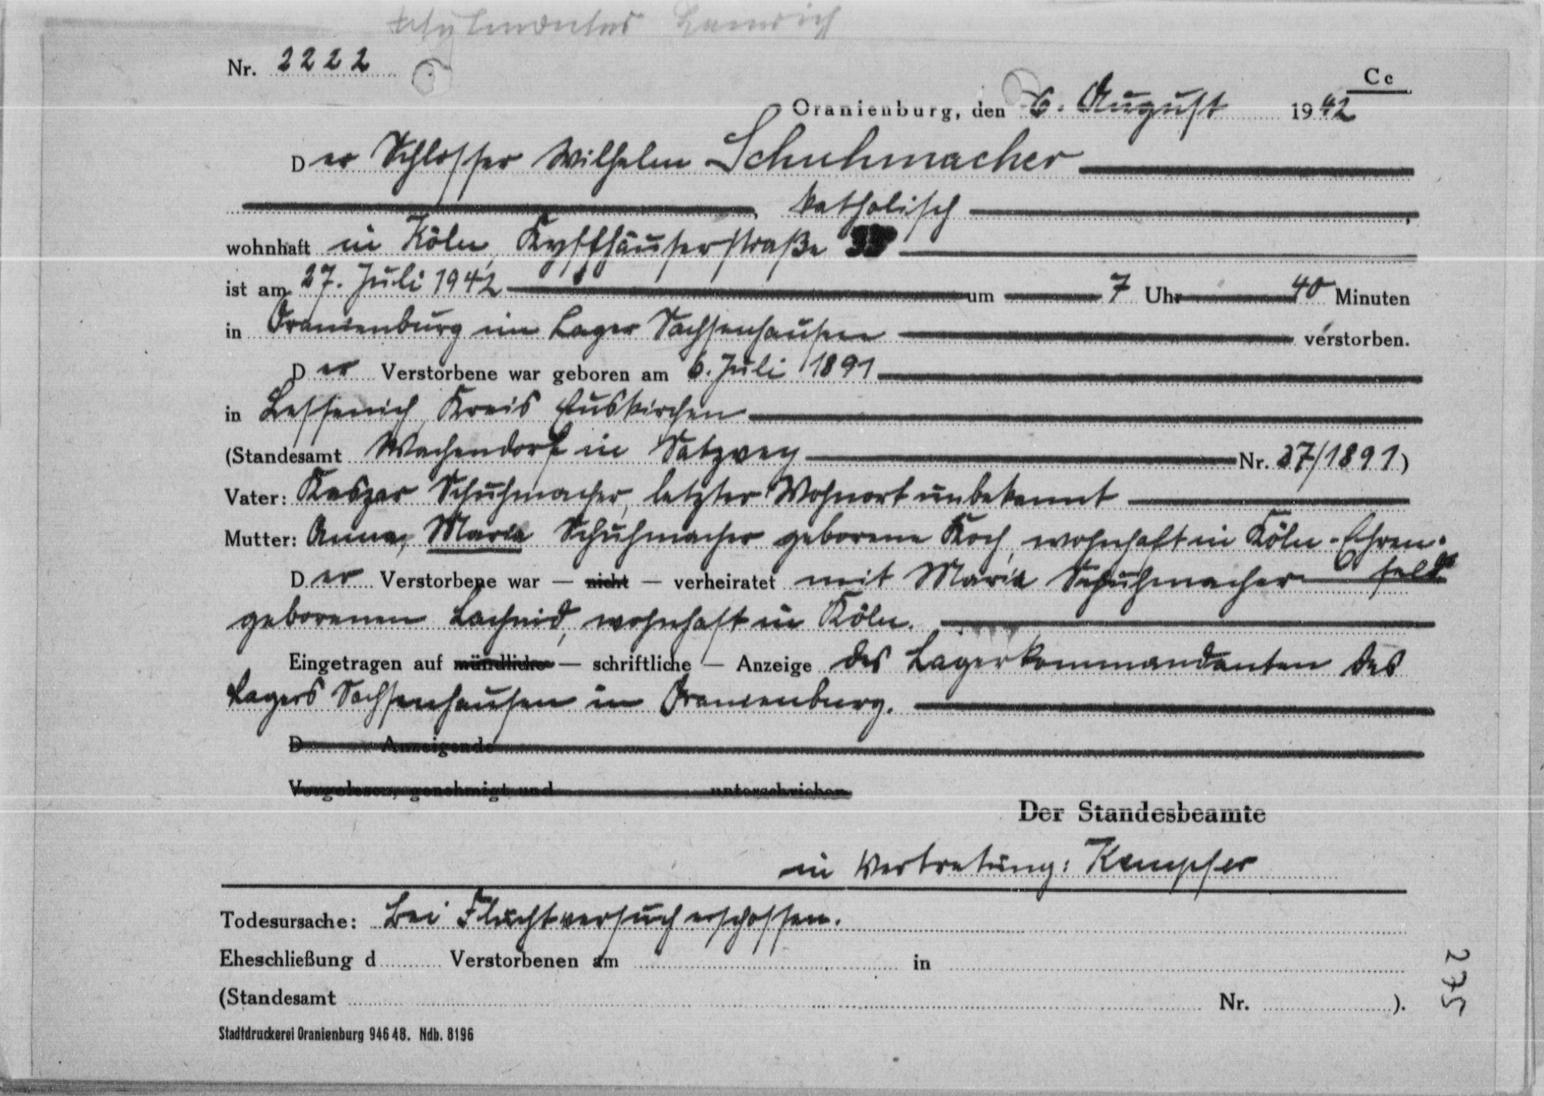 Nr. 2222
Cc
Oranienburg, den 6. August 1942
Der Schlosser Wilhelm Schuhmacher
, katholisch ,
wohnhaft in Köln, Kyffhäuserstraße
ist am 27. Juli 1942 um 7 Uhr 40 Minuten
in Oranienburg im Lager Sachsenhausen verstorben.
Der Verstorbene war geboren am 6. Juli 1891
in Lessenich, Kreis Euskirchen
(Standesamt Wachendorf in Satzvey Nr. 37/1891)
Vater: Kaspar Schuhmacher, letzter Wohnort unbekannt
Mutter: Anna, Maria Schuhmacher geborene Koch, wohnhaft in Köln-Ehren-
feld
Der Verstorbene war — nicht — verheiratet mit Maria Schuhmacher
geborenen wohnhaft in Köln.
Eingetragen auf mündliche — schriftliche — Anzeige des Lagerkommandanten des
Lagers Sachsenhausen in Oranienburg.
D Anzeigende
Vorgelesen, genehmigt und unterschrieben
Der Standesbeamte
in Vertretung: Kempfer
Todesursache: Bei Fluchtversuch erschossen.
Eheschließung d Verstorbenen am in
(Standesamt Nr. ).
Stadtdruckerei Oranienburg 946 48. Ndb. 8196
275